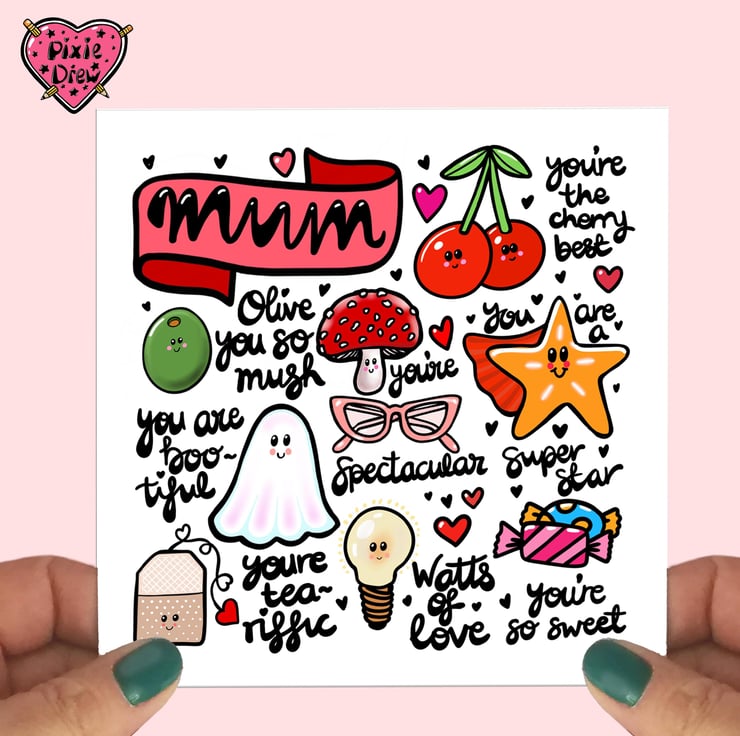 Pixie
Drew
mum
you're
the
cherry
best
Olive
you so
mush
you're
Spectacular
You are
a
super
star
you are
boo-
tiful
youre
tea-
riffic
Watts
of
love
you're
so sweet